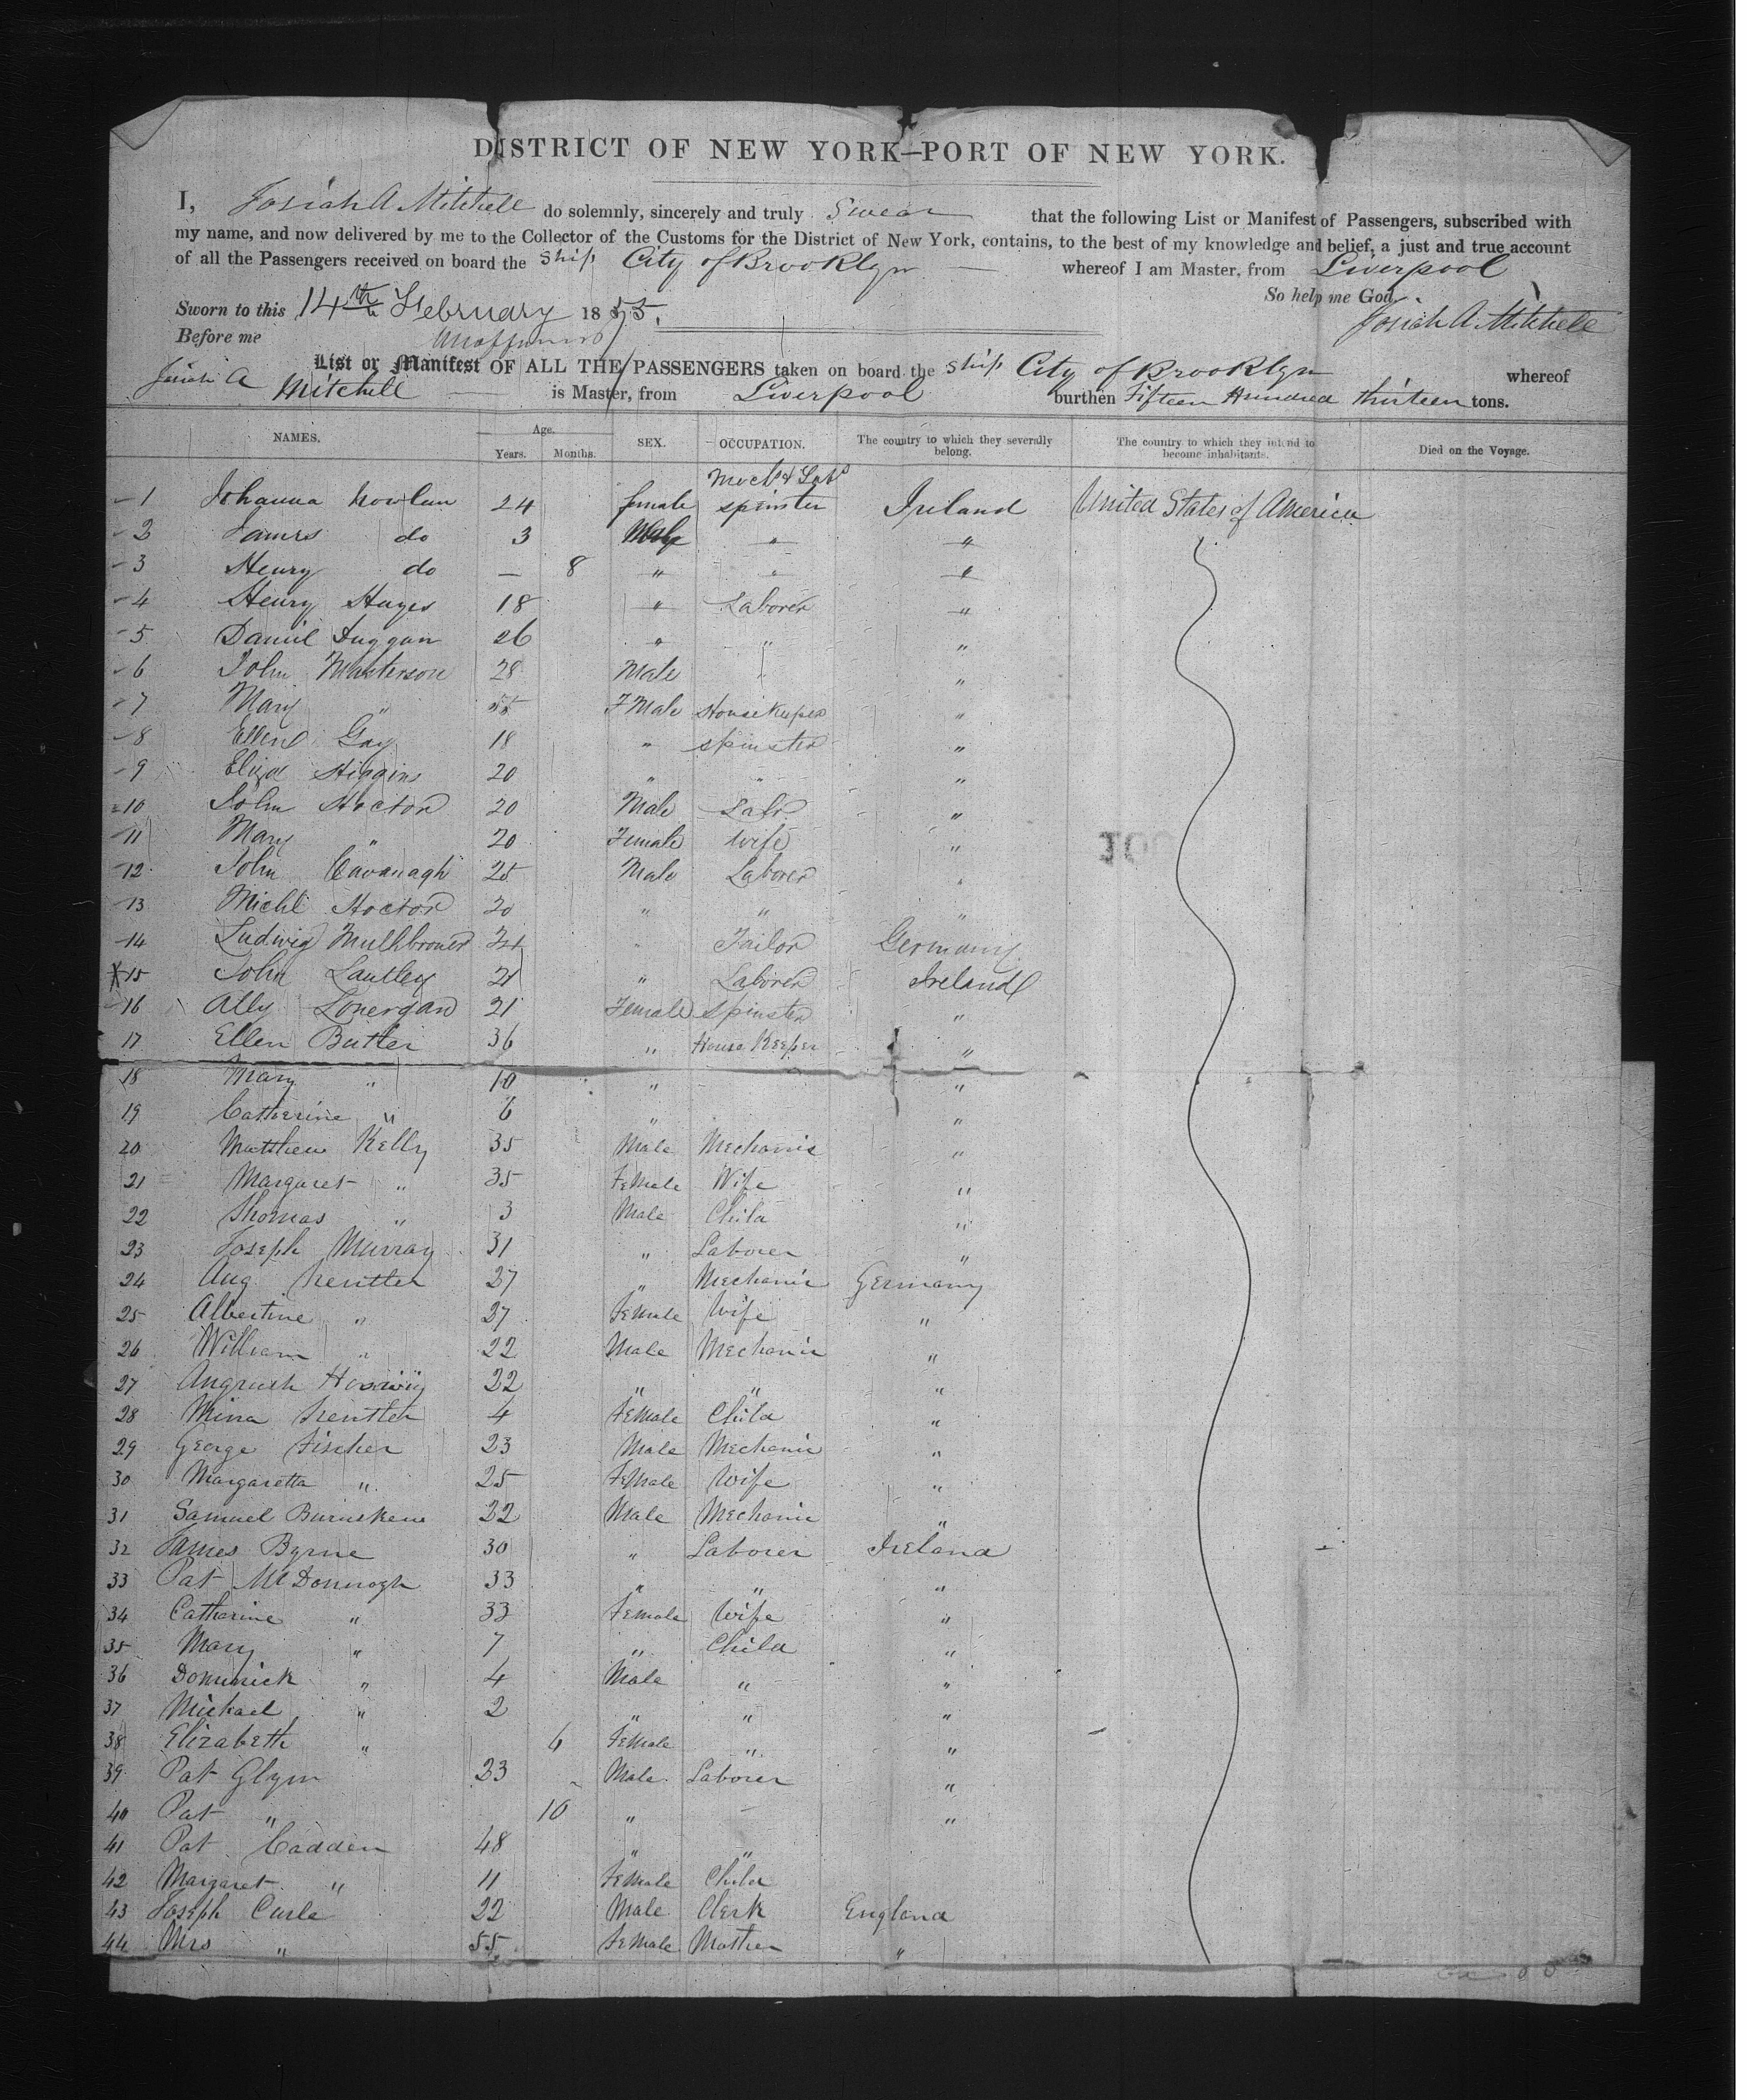 DISTRICT OF NEW YORK—PORT OF NEW YORK.
I, Josiah A Mitchell do solemnly, sincerely and truly swear that the following List or Manifest of Passengers, subscribed with
my name, and now delivered by me to the Collector of the Customs for the District of New York, contains, to the best of my knowledge and belief, a just and true account
of all the Passengers received on board the Ship City of Brooklyn — whereof I am Master, from Liverpool
So help me God.
Sworn to this 14th February 1855. Josiah A. Mitchell
Before me
List or Manifest OF ALL THE PASSENGERS taken on board the Ship City of Brooklyn whereof
Josiah A Mitchell — is Master, from Liverpool burthen Fifteen Hundred thirteen tons.
NAMES. Age. Years. Months. SEX. OCCUPATION. The country to which they severally belong. The country to which they intend to become inhabitants. Died on the Voyage.
1 Johanna Nowlan 24 female spinster Ireland United States of America
2 James do 3 Male " "
3 Henry do — 8 " " "
4 Henry Hayes 18 " Laborer "
5 Daniel Duggan 26 " " "
6 John Masterson 28 Male " "
7 Mary " FMale Housekeeper "
8 Ellen Gay 18 " Spinster "
9 Eliza Higgins 20 " " "
10 John Hoctor 20 Male Labr "
11 Mary " 20 Female Wife "
12 John Cavanagh 25 Male Laborer "
13 Michl Hoctor 20 " " "
14 Ludwig " Tailor Germany
X 15 John Lantley 21 " Laborer Ireland
16 Ally Lonergan 21 Female Spinster "
17 Ellen Butler 36 " House Keeper "
18 Mary " 10 " "
19 Catherine " 6 " "
20 Matthew Kelly 35 Male Mechanic "
21 Margaret " 35 Female Wife "
22 Thomas " 3 Male Child "
23 Joseph Murray 31 " Laborer "
24 Aug 27 " Mechanic Germany
25 Albertine " 27 Female Wife "
26 William " 22 Male Mechanic "
27 22 " " "
28 Mina 4 Female Child "
29 George Fischer 23 Male Mechanic "
30 Margaretta " 25 Female Wife "
31 Samuel 22 Male Mechanic "
32 James Byrne 30 " Laborer Ireland
33 Pat McDonnogh 33 " " "
34 Catharine " 33 Female Wife "
35 Mary " 7 " Child "
36 Domnick " 4 Male " "
37 Michael " 2 " " "
38 Elizabeth " 6 Female " "
39 Pat Glynn 23 Male Laborer "
40 Pat " 10 " – "
41 Pat Cadden 48 " "
42 Margaret " 11 Female Child
43 Joseph Curle 22 Male Clerk England
44 Mrs " 55 Female Mother "